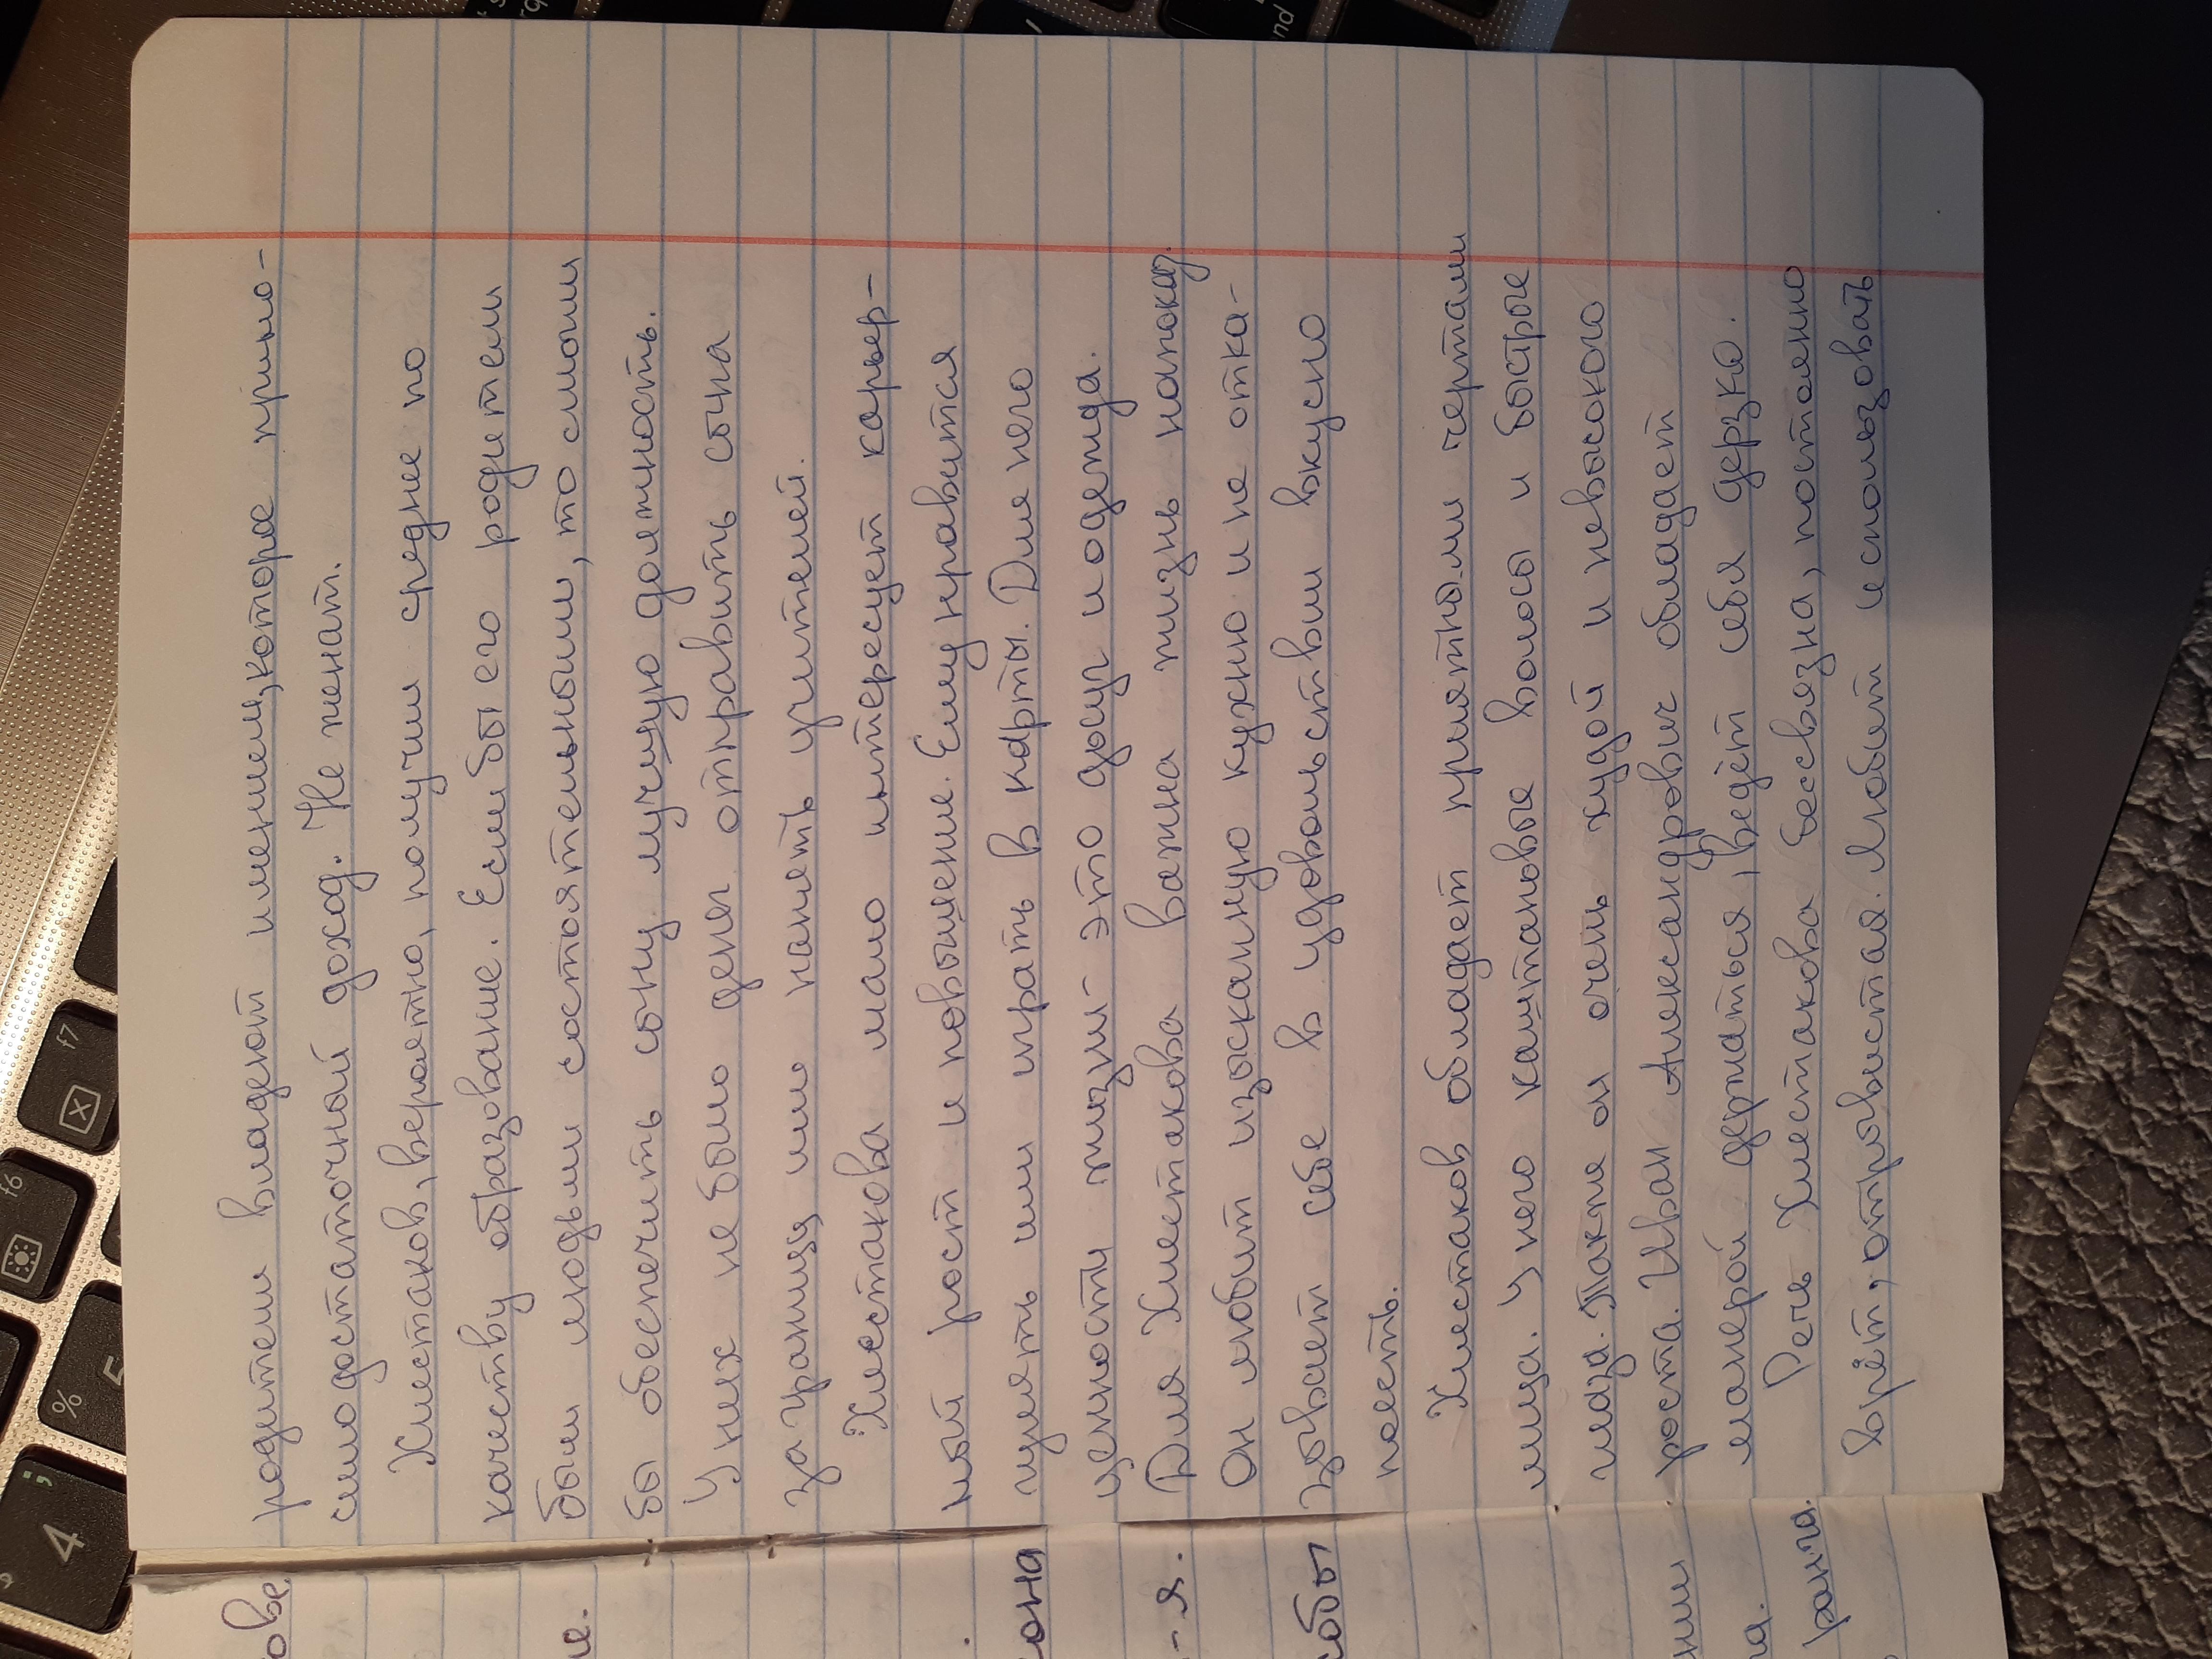 родители владеют имением, которое прино-
сит достаточный доход. Не женат.
Хлестаков, вероятно, получил среднее по
качеству образование. Если бы его родители
были людьми состоятельными, то смогли
бы обеспечить сыну лучшую должность.
У них не было денег отправить сына
за границу или нанять учителей.
Хлестакова мало интересует карьер-
ный рост и повышение. Ему нравится
гулять или играть в карты. Для него
ценности жизни - это досуг и одежда.
Для Хлестакова важна жизнь напоказ.
Он любит изысканную кухню и не отка-
зывает себе в удовольствии вкусно
поесть.
Хлестаков обладает приятными чертами
лица. У него каштановые волосы и быстрые
глаза. Также он очень худой и невысокого
роста. Иван Александрович обладает
манерой держаться, ведёт себя дерзко.
Речь Хлестакова бессвязна, постоянно
врёт, отрывистая. Любит использовать
4
%
5
f6
f7
nd
ове.
ие.
она
- я.
собы
ании
на.